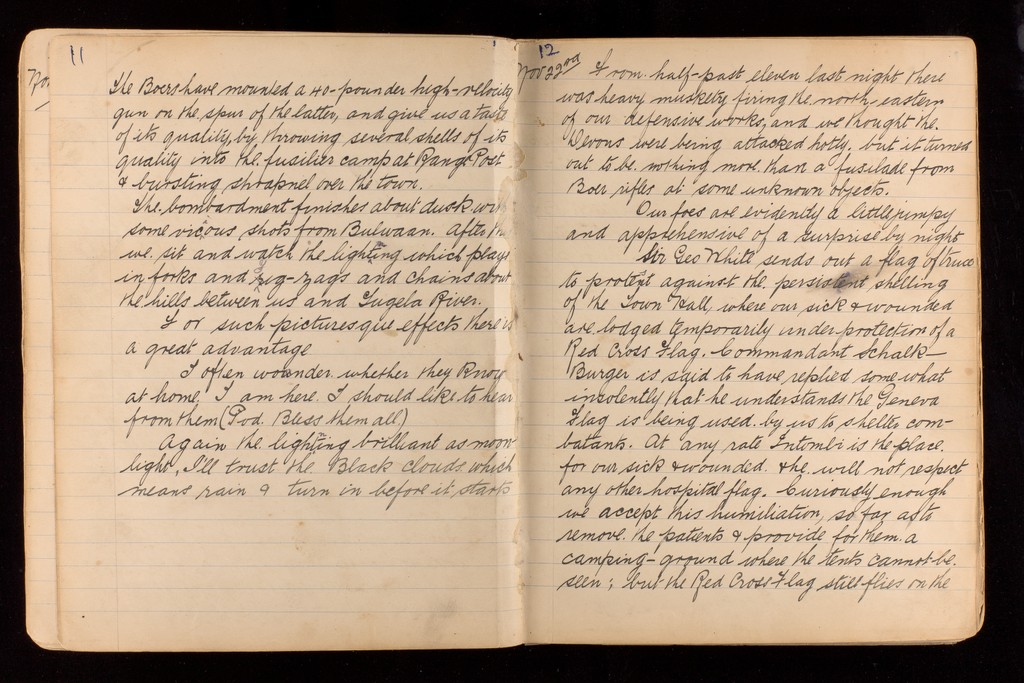 11
The Boers have mounted a 40-pounder high-velocity
gun on the spur of the latter, and give us a taste
of its quality, by throwing several shells of its
quality into the fusilier camp at Range Post
& bursting shrapnel over the town.
The bombardment finishes about dusk with
some vicious shots from Bulwaan. After
we sit and watch the lighting which plays
in forks and zig-zags and chains about
the hills between us and Tugela River.
For such picturesque effects there is
a great advantage
I often wounder whether they know
at home, I am here. I should like to hear
from them (God. Bless them all)
Again the lighting brilliant as moon
light, I'll trust the Black clouds which
means rain & turn in before it starts
12
Nov 22nd From half-past eleven last night there
was heavy muskety firing the north-eastern
of our defensive works, and we thought the
Devons were being attacked hotly. but it turned
out to be nothing more than a fusilade from
Boer rifles at some unknown objects.
Our foes are evidently a little jumpy
and apprehensive of a surprise by night
Sir Geo White sends out a flag of truce
to protest against the persistent shelling
of the Town Hall, where our sick & wounded
are lodged temporarily under protection of a
Red Cross Flag. Commandant Schalk-
Burger is said to have replied some what
insolently that he understands the Geneva
Flag is being used by us to shelter com-
batants. At any rate Intombi is the place
for our sick & wounded. & he will not respect
any other hospital flag. Curiously enough
we accept this humiliation, so far as to
remove the patients & provide for them a
camping-ground where the tents cannot be
seen; but the Red Cross Flag still flies on the